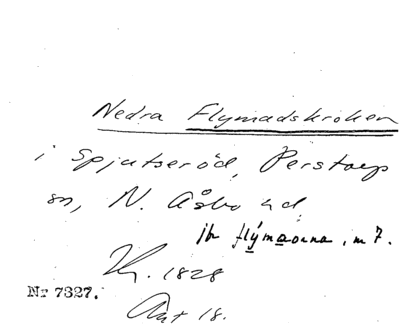 Nedra Flymadskroken
i Spjutseröd, Perstorp
sn, N. Åsbo hd
jfr flýmaɷrna, m 7.
1828
Nr 7327.
Akt 18.